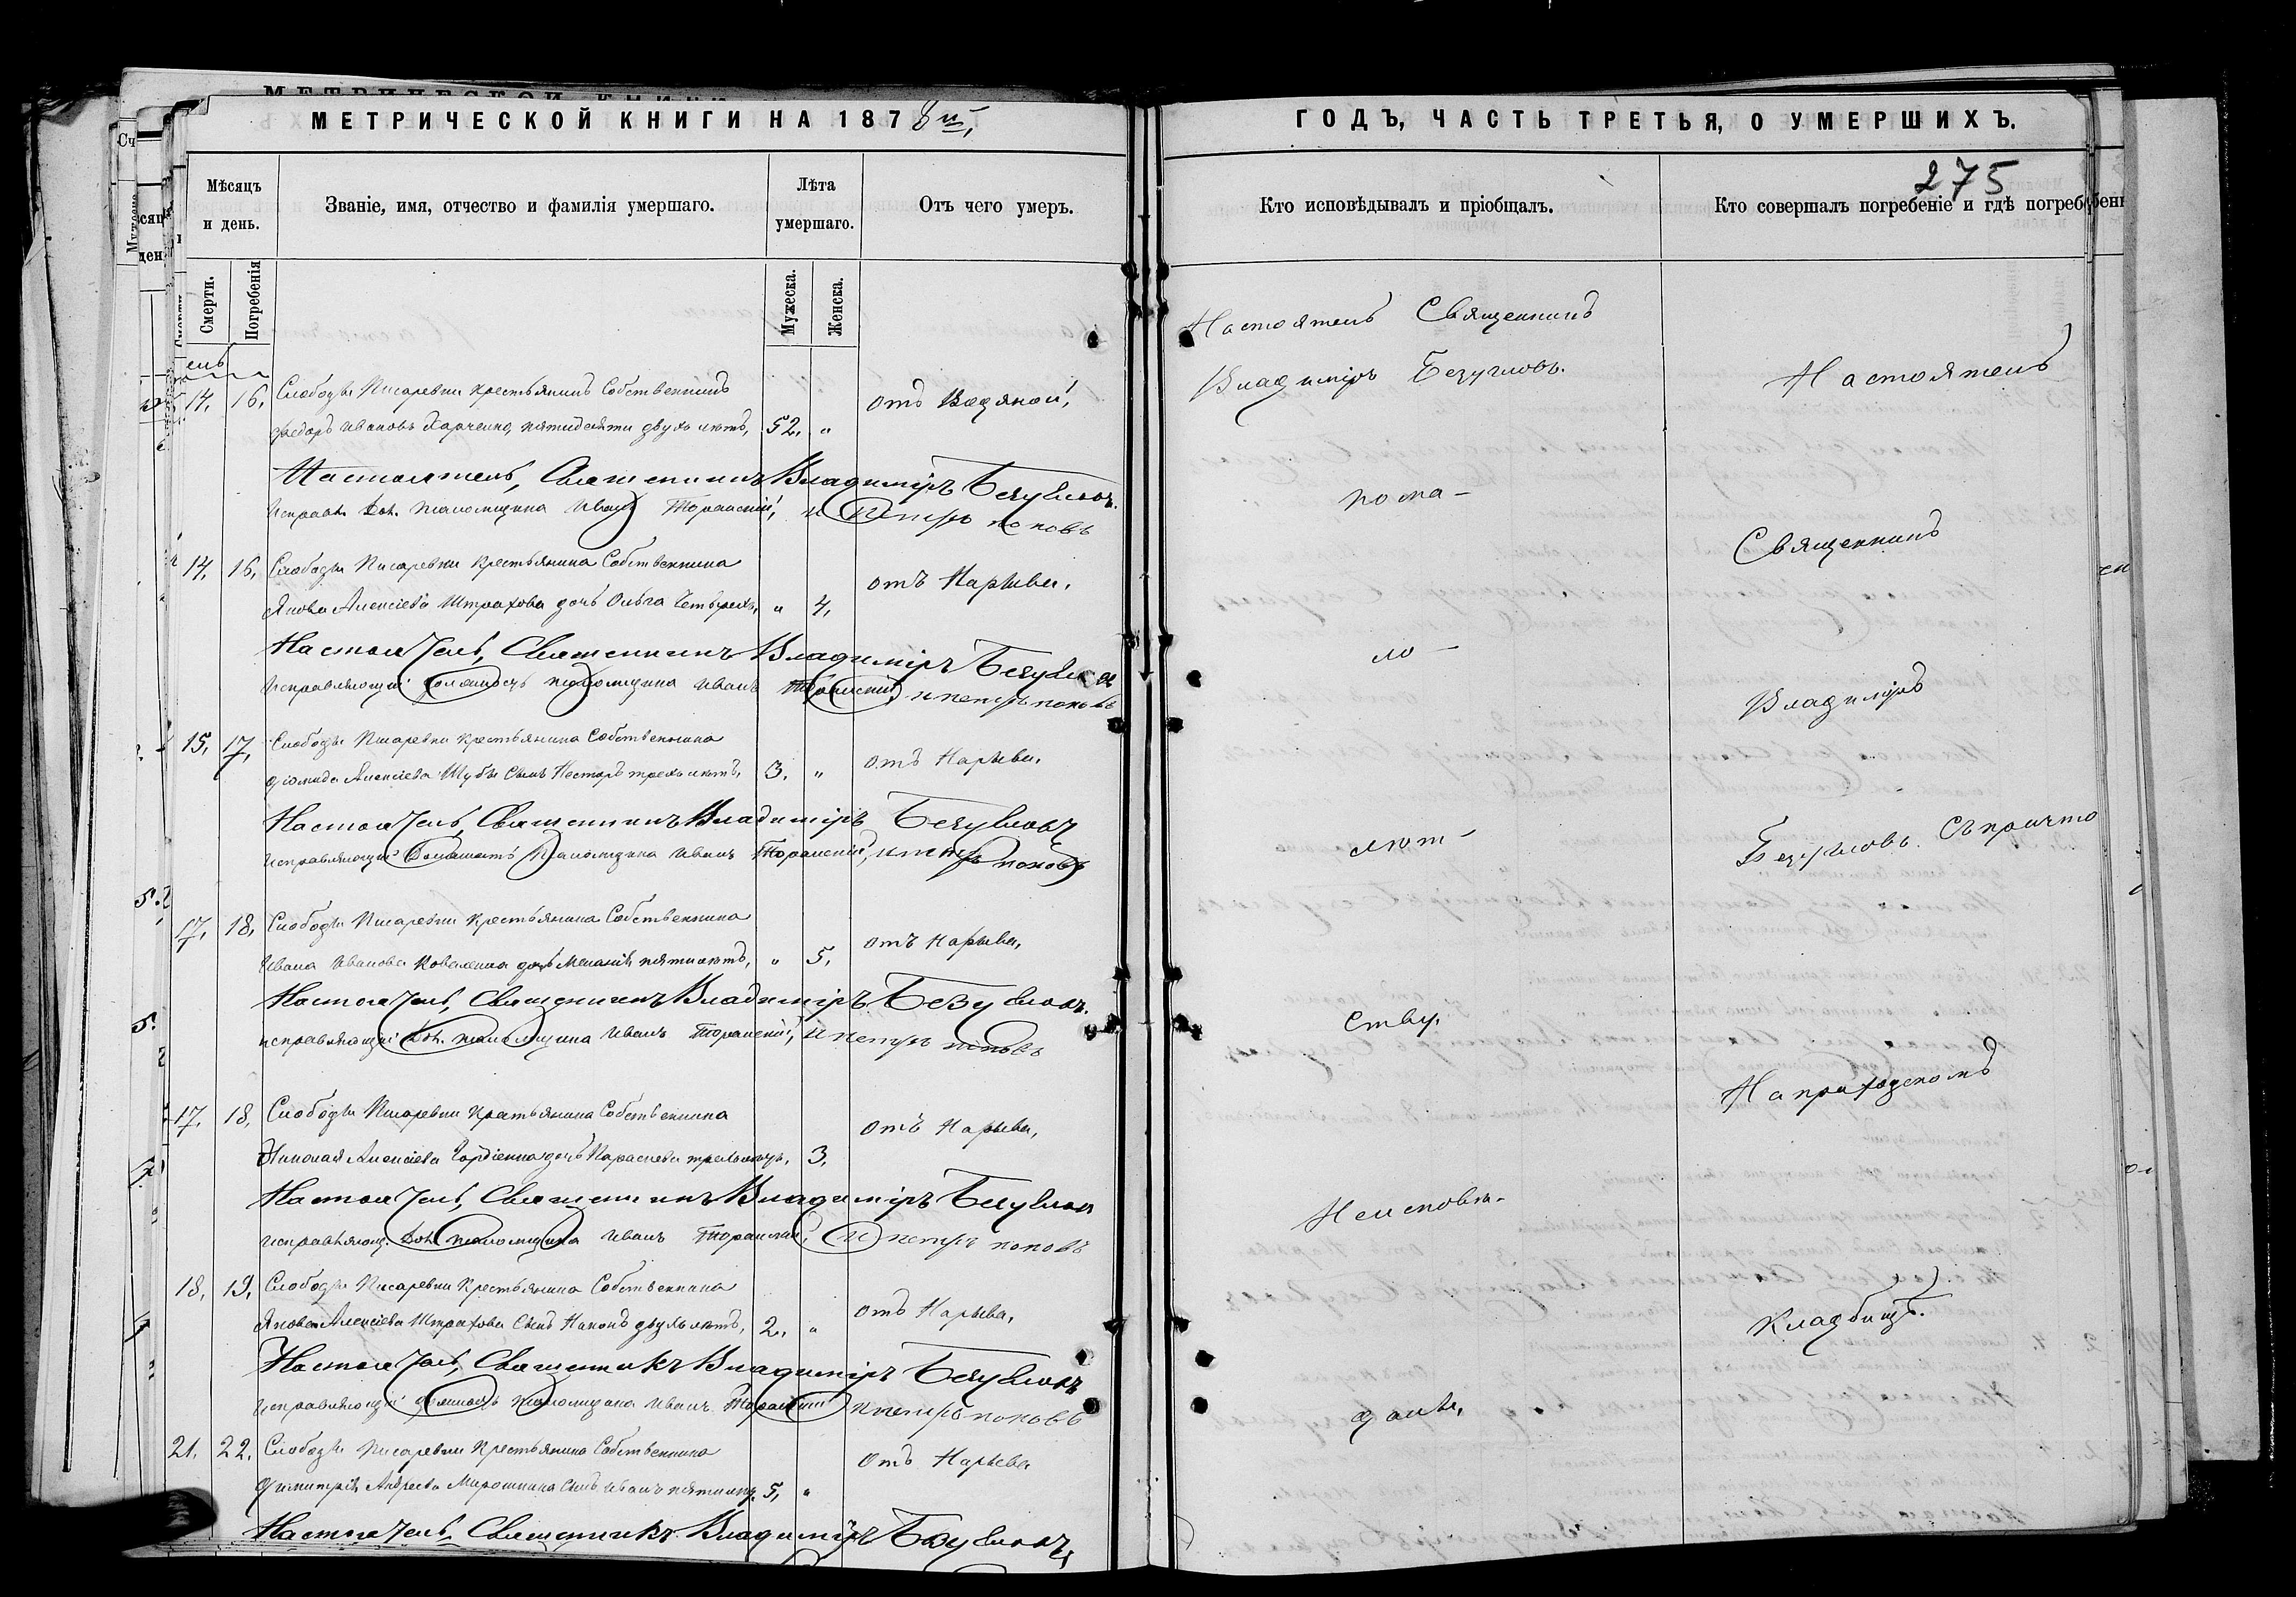 МЕТРИЧЕСКОЙ КНИГИ НА 1878й,
Мѣсяцъ и день.
Званіе, имя, отчество и фамилія умершаго.
Лѣта умершаго.
Отъ чего умеръ.
Смерти.
Погребенія
Мужеска.
Женска.
14. 16. Слободы Писаревки крестьянинъ Собственникъ
Ѳедоръ Ивановъ Харченко, пятидесяти двухъ лѣтъ, 52. „ отъ Водяной,
Настоятель, Священникъ Владиміръ Безугловъ.
Исправл. Дол. псаломщика Иванъ Торанскій, и Петръ Поповъ
14. 16. Слободы Писаревки крестьянина Собственника
Якова Алексіева Штрахова дочь Ольга четырехъ, „ 4, отъ Нарыва,
Настоятель, Священникъ Владиміръ Безуглов
Исправляющій должность псаломщика Иванъ Торанскій, и Петръ Поповъ
15, 17, Слободы Писаревки крестьянина Собственника
Діомида Алексіева Шубы Сынъ Несторъ трехъ лѣтъ, 3. „ отъ Нарыва,
Настоятель, Священникъ Владиміръ Безугловъ
Исправляющій Должность Псаломщика Иванъ Торанскій, и Петръ Поповъ
17, 18, Слободы Писаревки крестьянина Собственника
Ивана Иванова дочь Меланія пяти лѣтъ, „ 5, отъ Нарыва,
Настоятель, Священникъ Владиміръ Безугловъ.
исправляющій Дол. псаломщика Иванъ Торанскій, и Петръ Поповъ
17. 18. Слободы Писаревки крестьянина Собственника
Николая Алексіева Гордіенка дочь Параскева трехъ лѣтъ, 3. отъ Нарыва,
Настоятель, Священникъ Владиміръ Безуглов
исправляющ. Дол. псаломщика Иванъ Торанскій, и Петръ Поповъ
18, 19, Слободы Писаревки Крестьянина Собственника
Якова Алексіева Штрахова Сынъ двухъ лѣтъ, 2., „ отъ Нарыва,
Настоятель, Священникъ Владиміръ Безугловъ
исправляющій должность псаломщика Иванъ Торанскій и Петръ Поповъ
21. 22. Слободы Писаревки Крестьянина Собственника
Димитрія Андреева Мирошника Сынъ Иванъ пяти лѣтъ, 5, „ отъ Нарыва
Настоятель, Священникъ Владиміръ Безугловъ,
ГОДЪ, ЧАСТЬ ТРЕТЬЯ, О УМЕРШИХЪ.
275
Кто исповѣдывалъ и пріобщалъ.
Кто совершалъ погребеніе и гдѣ погребе
Настоятель Священникъ
Владиміръ Безугловъ.
по ма-
ло-
лѣт-
ству.
Неисповѣ-
даны,
Настоятель
Священникъ
Владиміръ
Безугловъ. Съ причто
На приходскомъ
Кладбищѣ.